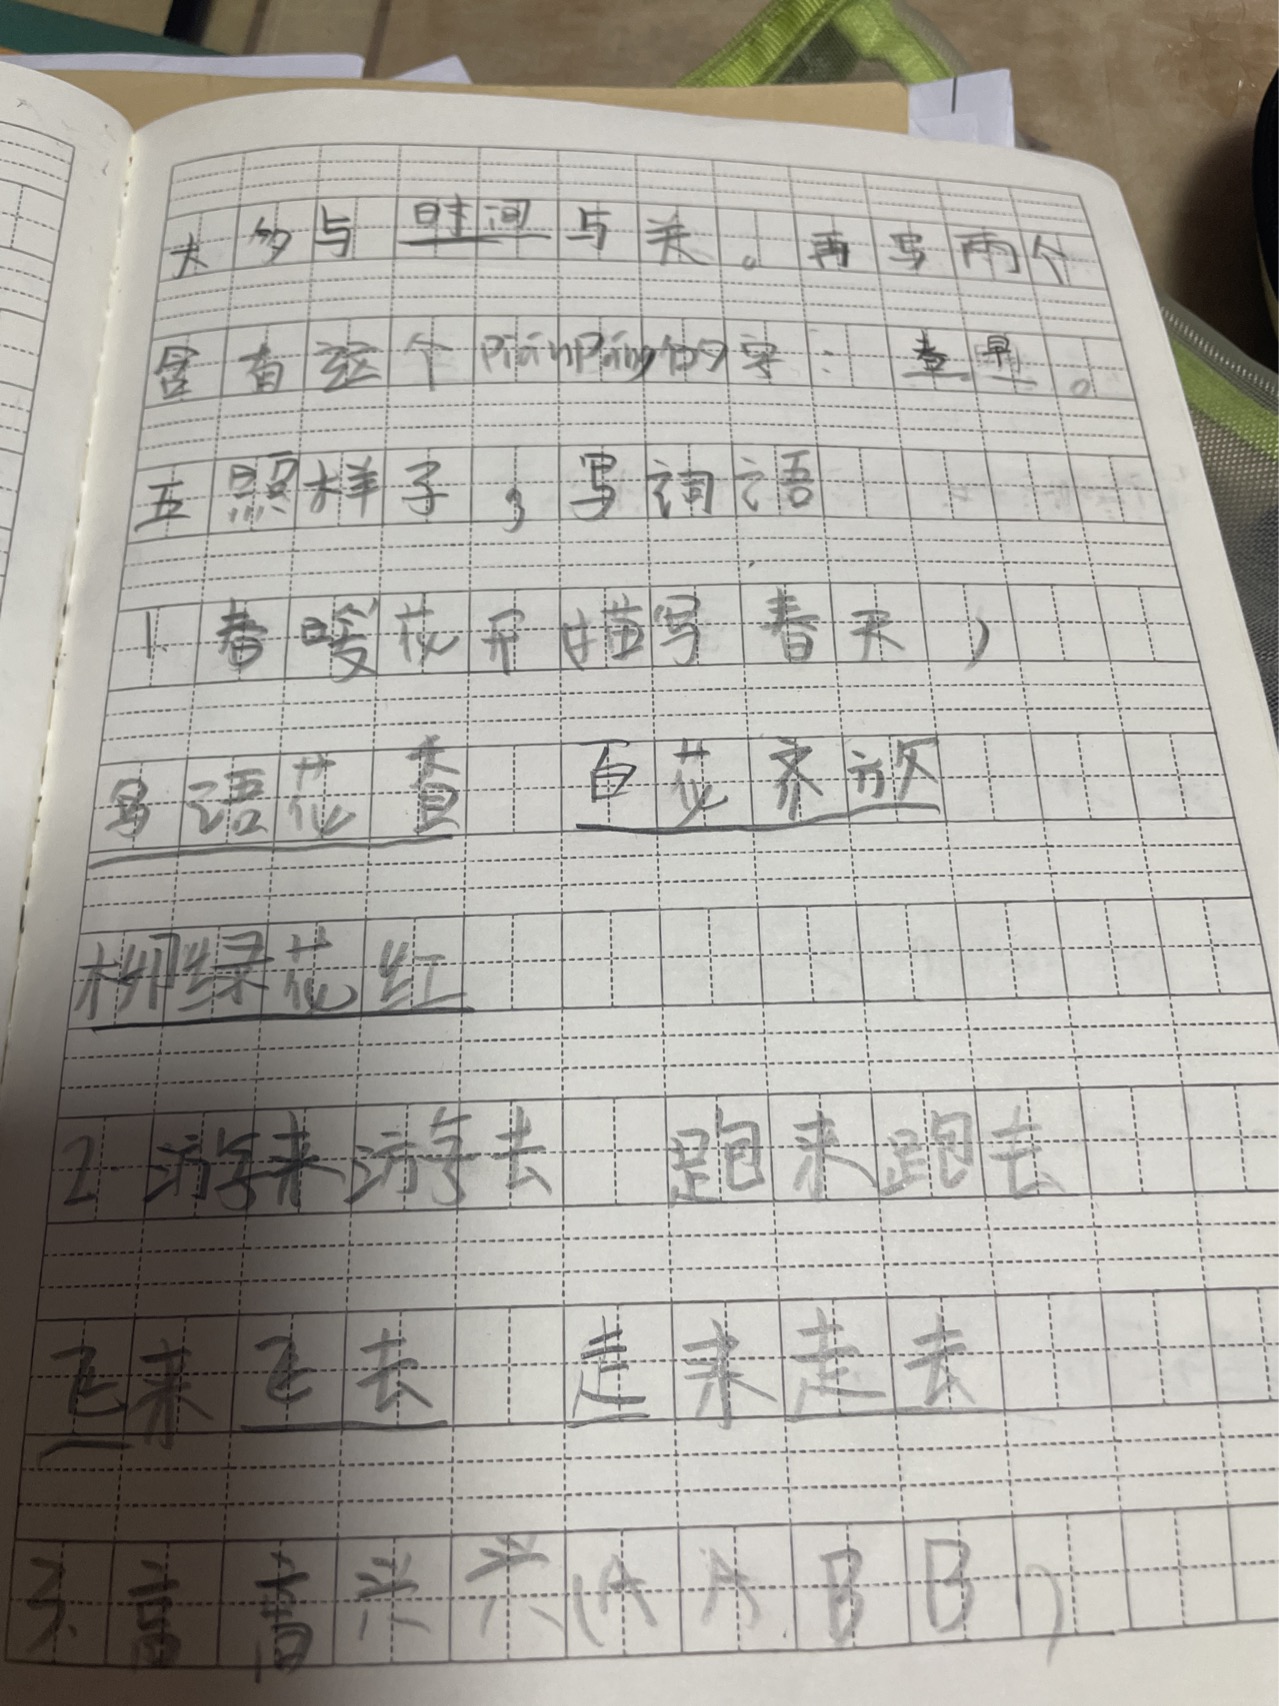 大多与时间与关。再写两个
含有这个pianpang的字：春早。
五照样子，写词语
1.春暖花开(描写春天)
鸟语花香 百花齐放
柳绿花红
2.游来游去 跑来跑去
飞来飞去 走来走去
3.高高兴兴(AABB)